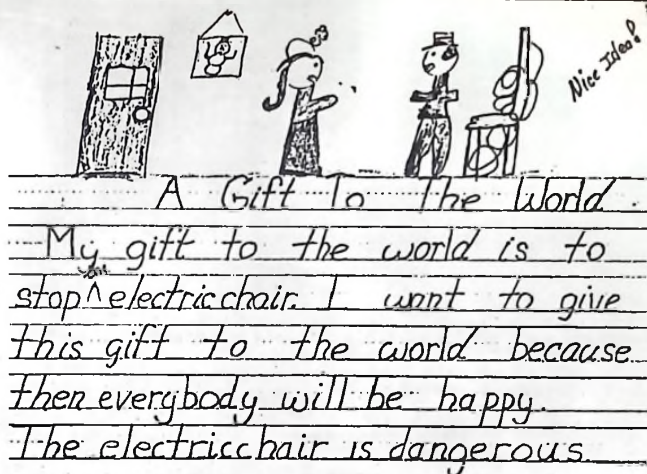 Nice Idea!
A Gift To The World
My gift to the world is to
stop ^ electricchair. I want to give
this gift to the world because
then everybody will be happy.
The electricchair is dangerous